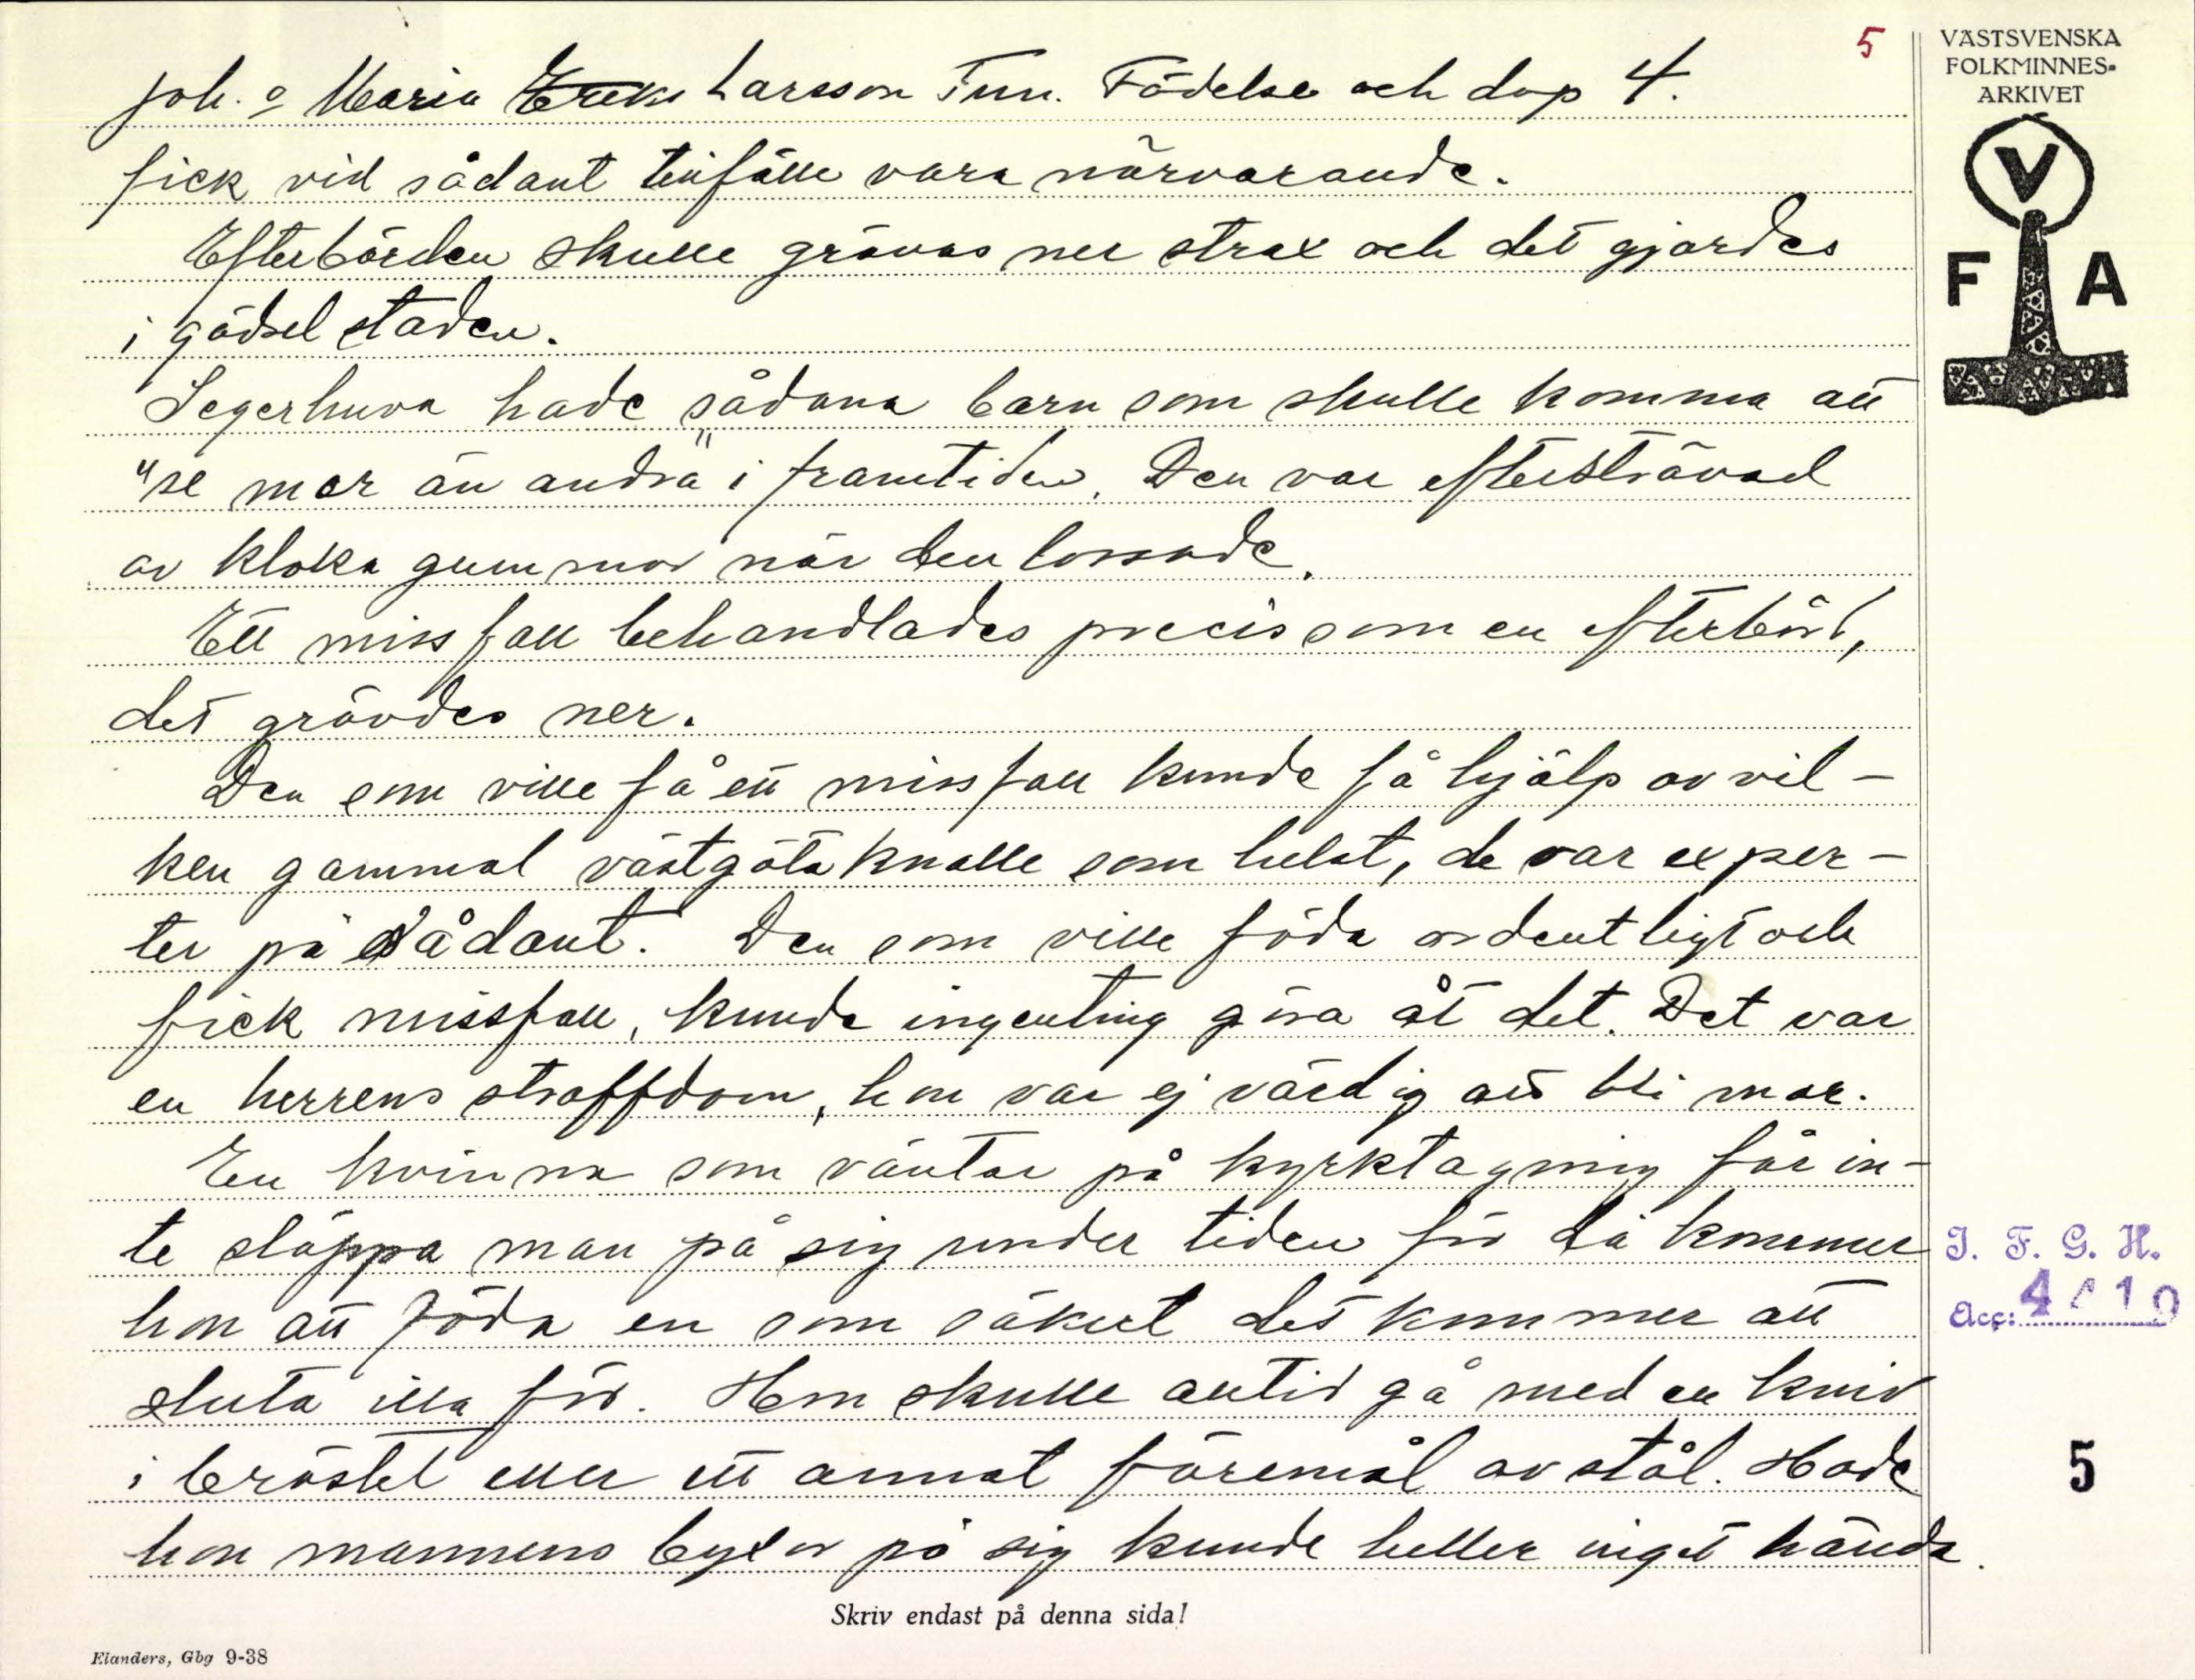 5
VÄSTSVENSKA
FOLKMINNES-
ARKIVET
V
F A
Joh. o Maria Larsson Tun. Födelse och dop 4.
fick vid sådant tillfälle vara närvarande.
Efterbörden skulle grävas ner strax och det gjordes
i gödselstaden.
Segerhuva hade sådana barn som skulle komma att
"se mer än andra" i framtiden. Den var eftersträvad
av kloka gummor när den lossnade.
Ett missfall behandlades precis som en efterbörd,
det grävdes ner.
Den som ville få ett missfall kunde få hjälp av vil-
ken gammal västgötaknalle som helst, de var exper-
ter på sådant. Den som ville föda ordentligt och
fick missfall, kunde ingenting göra åt det. Det var
en herrens straffdom, hon var ej värdig att bli mor.
En kvinna som väntar på kyrktagning får in-
te släppa man på sig under tiden för då kommer
hon att föda en som säkert det kommer att
sluta illa för. Hon skulle alltid gå med en kniv
i bröstet eller ett annat föremål av stål. Hade
hon mannens byxor på sig kunde heller inget hända.
I. F. G. H.
Acc:
5
Skriv endast på denna sida!
Elanders, Gbg 9-38